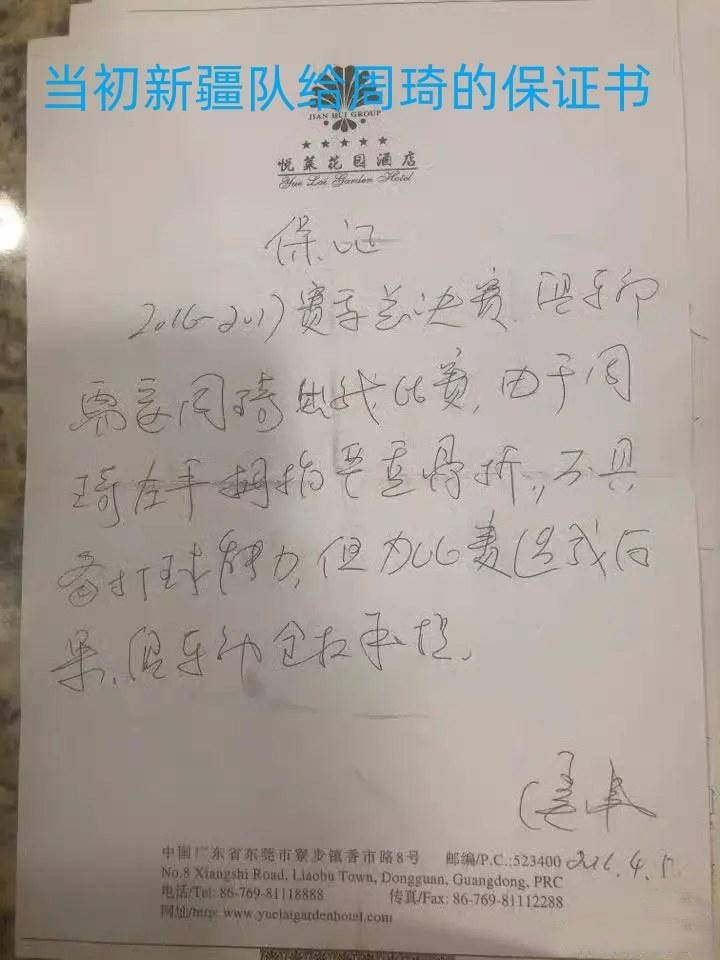 当初新疆队给周琦的保证书
JIAN HUI GROUP
★★★★★
悦莱花园酒店
Yue Lai Garden Hotel
保证
2016-2017赛季总决赛,俱乐部
需要周琦出战比赛,由于周
琦左手拇指严重骨折,不具
备打球能力,但为比赛造成后
果,俱乐部全权承担。
中国广东省东莞市寮步镇香市路8号 邮编/P.C.:523400
No.8 Xiangshi Road, Liaobu Town, Dongguan, Guangdong, PRC
电话/Tel: 86-769-81118888 传真/Fax: 86-769-81112288
网址/http: www.yuelaigardenhotel.com